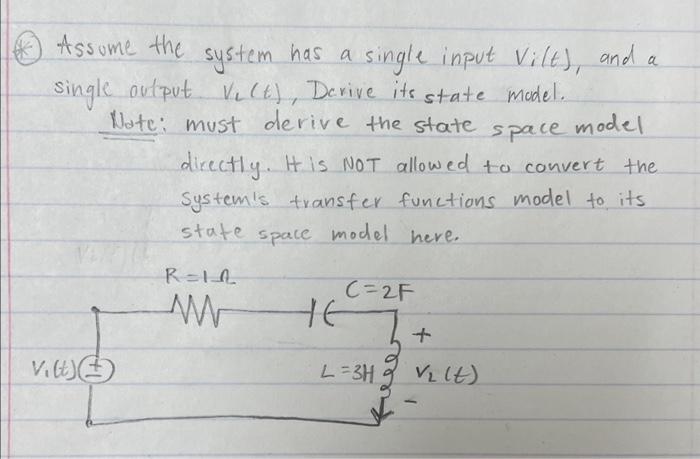 * Assume the system has a single input Vi(t), and a
single output V₂(t), Derive its state model.
Note: must derive the state space model
directly. It is NOT allowed to convert the
system's transfer functions model to its
state space model here.
R=1Ω
C=2F
+
V₁(t) ±
L=3H
V₂(t)
-